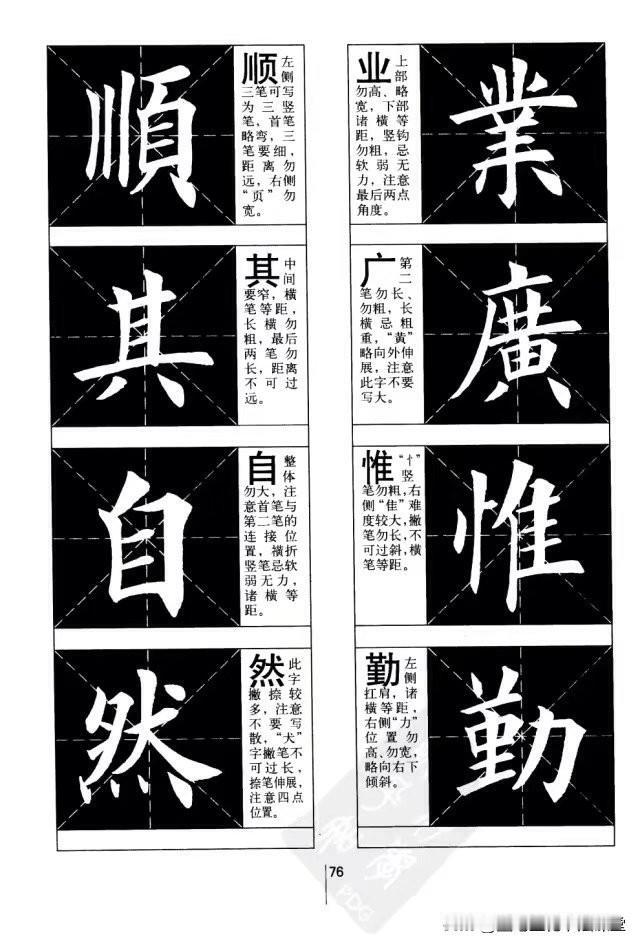 業
业 上
部
勿高、略
宽，下部
诸横等
距，竖钩
勿粗，忌
软弱无
力，注意
最后两点
角度。
廣
广 第
二
笔勿长、
勿粗，长
横忌粗
重，“黄”
略向外伸
展，注意
此字不要
写大。
惟
惟 “忄”
竖
笔勿粗，右
侧“隹”难
度较大，撇
笔勿长，不
可过斜，横
笔等距。
勤
勤 左
侧
扛肩，诸
横等距，
右侧“力”
位置勿
高、勿宽，
略向右下
倾斜。
順
顺 左
侧
三笔可写
为三竖
笔，首笔
略弯，三
笔要细，
距离勿
远，右侧
“页”勿
宽。
其
其 中
间
要窄，横
笔等距，
长横勿
粗，最后
两笔勿
长，距离
不可过
远。
自
自 整
体
勿大，注
意首笔与
第二笔的
连接位
置，横折
竖笔忌软
弱无力，
诸横等
距。
然
然 此
字
撇捺较
多，注意
不要写
散，“犬”
字撇笔不
可过长，
捺笔伸展，
注意四点
位置。
76
PDG